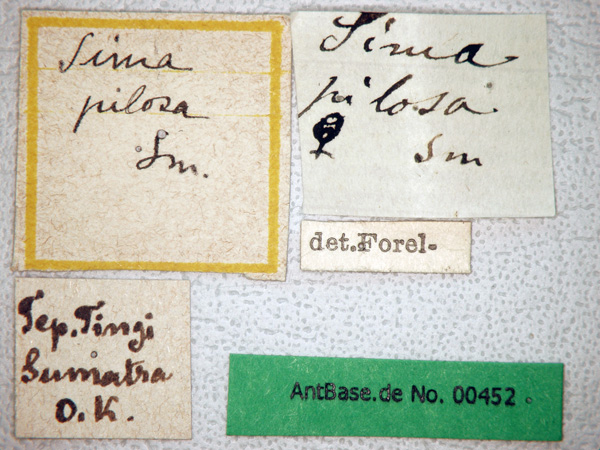 Sima
pilosa
Sm.
Sima
pilosa
☿ Sm
det.Forel-
Tep.Tingi
Sumatra
O.K.
AntBase.de No. 00452